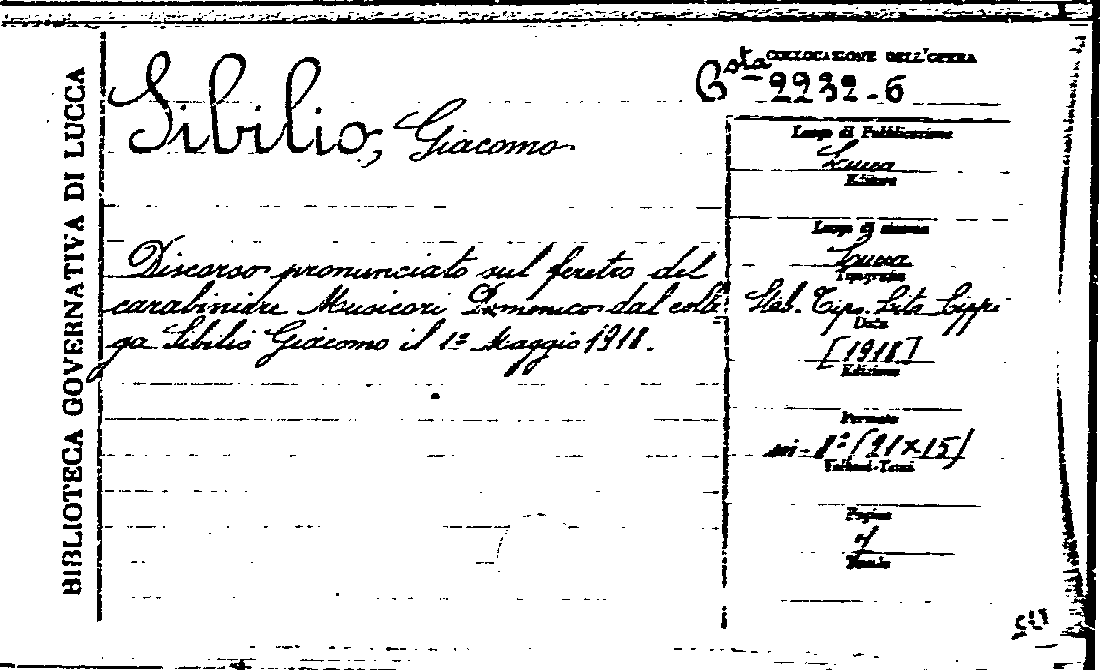 BIBLIOTECA GOVERNATIVA DI LUCCA
Sibilio, Giacomo
Discorso pronunciato sul feretro del
carabiniere Musicori Domenico dal colle
ga Sibilio Giacomo il 1° Maggio 1918.
COLLOCAZIONE DELL'OPERA
Bsta 2232-6
Luogo di Pubblicazione
Lucca
Editore
Luogo di stampa
Lucca
Tipografia
Stab. Tipo. Lito Cippi
Data
[1918]
Edizione
Formato
in-8° (21×15)
Volumi-Tomi
Pagine
Tavole